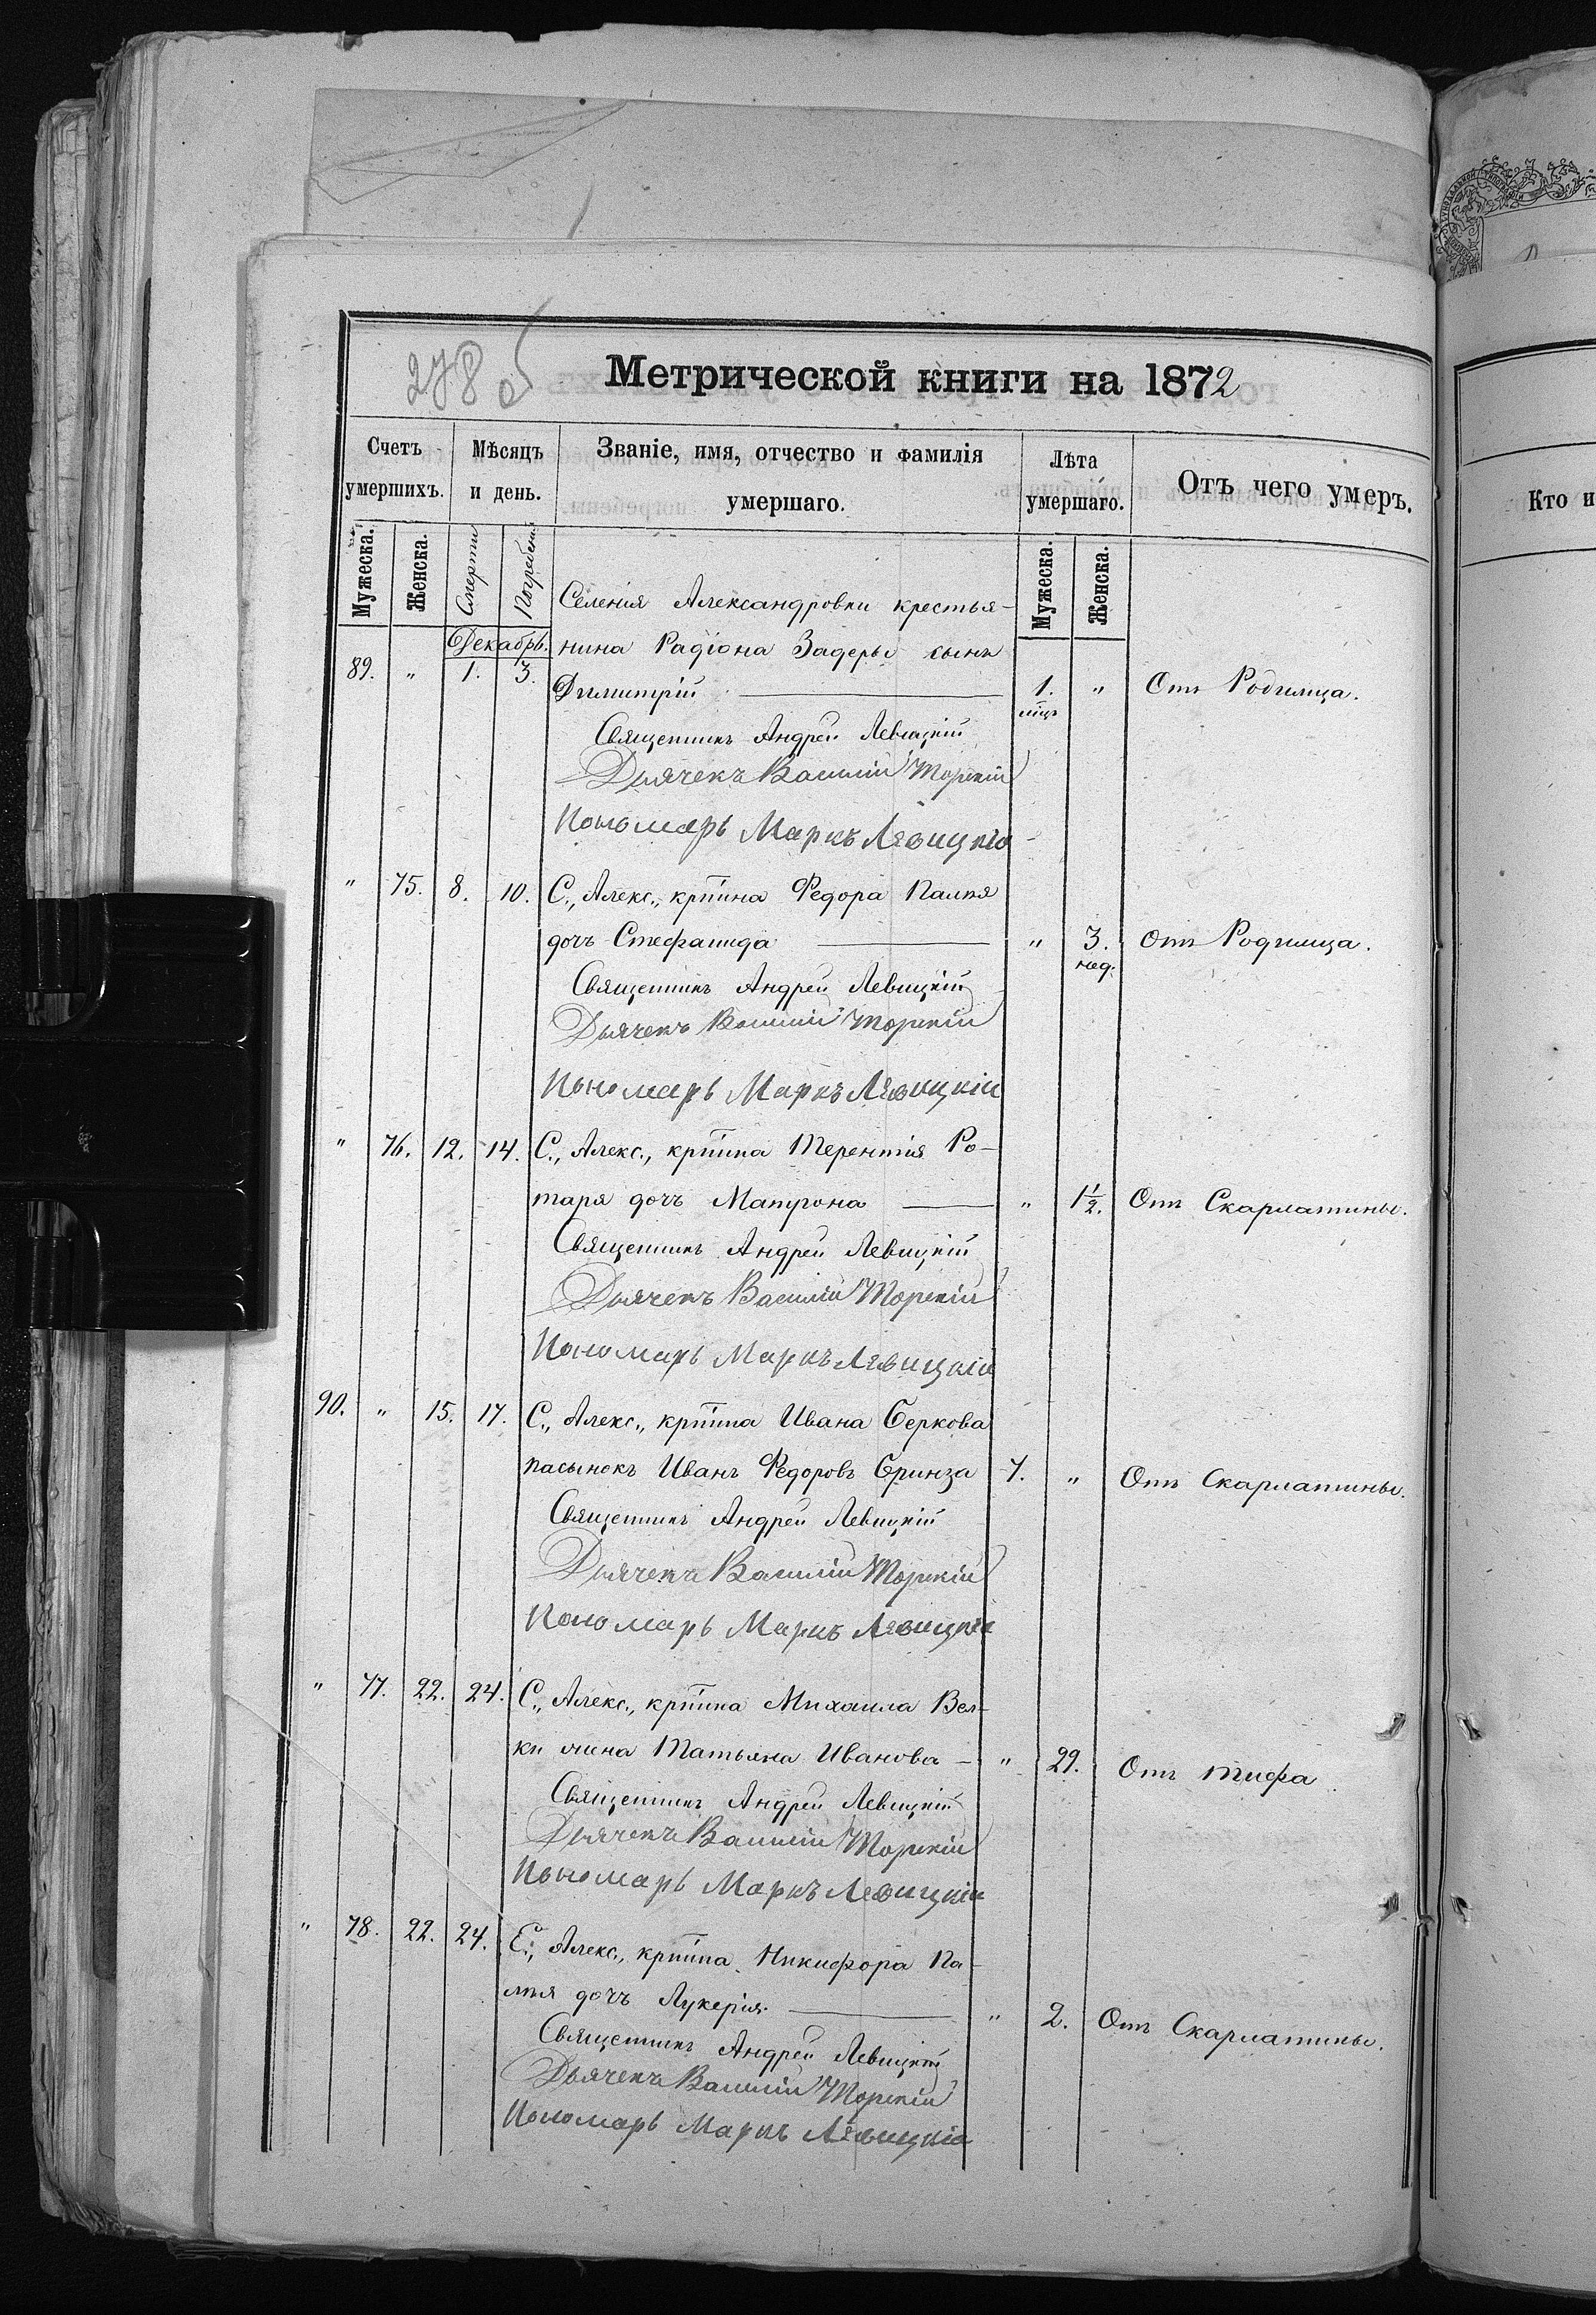 278 об
Метрической книги на 1872
Счетъ умершихъ.
Мѣсяцъ и день.
Званіе, имя, отчество и фамилія умершаго.
Лѣта умершаго.
Отъ чего умеръ.
Кто и
Мужеска. Женска. Смерти Погребен. Мужеска. Женска.
Декабрь.
Селенія Александровки крестья-
нина Радіона Задеры сынъ
89. " 1. 3. Димитрій 1. мцъ " Отъ Родимца.
Священникъ Андрей Левицкій
Дьячекъ Василій Торскій
Пономарь Маркъ Лѣвицкій
" 75. 8. 10. С., Алекс., крпина Федора Палія
дочь Стефанида " 3. нед. Отъ Родимца.
Священникъ Андрей Левицкій
Дьячекъ Василій Торскій
Пономарь Маркъ Лѣвицкій
" 76. 12. 14. С., Алекс., крпина Терентія Ро-
таря дочь Матрона " 1 1/2. Отъ Скарлатины.
Священникъ Андрей Левицкій
Дьячекъ Василій Торскій
Пономарь Маркъ Лѣвицкій
90. " 15. 17. С., Алекс., крпина Ивана Беркова
пасынокъ Иванъ Федоровъ Бринза 7. " Отъ Скарлатины.
Священникъ Андрей Левицкій
Дьячекъ Василій Торскій
Пономарь Маркъ Лѣвицкій
" 77. 22. 24. С., Алекс., крпина Михаила Вел-
ки жена Татьяна Иванова " 29. Отъ тифа
Священникъ Андрей Левицкій
Дьячекъ Василій Торскій
Пономарь Маркъ Лѣвицкій
" 78. 22. 24. С., Алекс., крпина Никифора Па-
лія дочь Лукерія " 2. Отъ Скарлатины.
Священникъ Андрей Левицкій
Дьячекъ Василій Торскій
Пономарь Маркъ Лѣвицкій